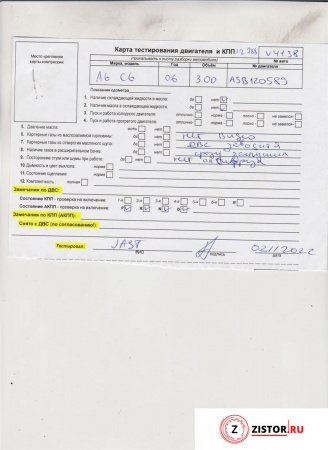 Место крепления карты компрессии
Карта тестирования двигателя и КПП
V4138
(прикладывать к листу разборки автомобиля)
Марка, модель Год Объём № двигателя № авто
A6 C6 06 3.00 ASB120589
Показания одометра
1. Наличие охлаждающей жидкости в масле: да нет
2. Наличие масла в охлаждающей жидкости: да нет
3. Пуск и работа холодного двигателя: отлично - норма - плохо - не завелся -
4. Пуск и работа прогретого двигателя: отлично - норма - плохо - не завелся -
5. Давление масла: есть нет
6. Картерные газы из маслозаливной горловины: да нет
нет видео
7. Картерные газы из отверстия масляного щупа: да нет
8. Наличие газов в расширительном бачке: да нет
9. Посторонние стуки или шумы при работе: да нет
10. Дымность и цвет выхлопа: норма
11. Состояние сцепления: норма
12. Комплектность: полная
Замечания по ДВС:
Состояние КПП - проверка на включение: 1-я 2-я 3-я 4-я 5-я 6-я
Состояние АКПП - проверка на включение: P R N D
Замечания по КПП (АКПП):
Снято с ДВС (по согласованию!):
Тестировал: 02/11/2022
ФИО подпись дата
Z ZISTOR.RU